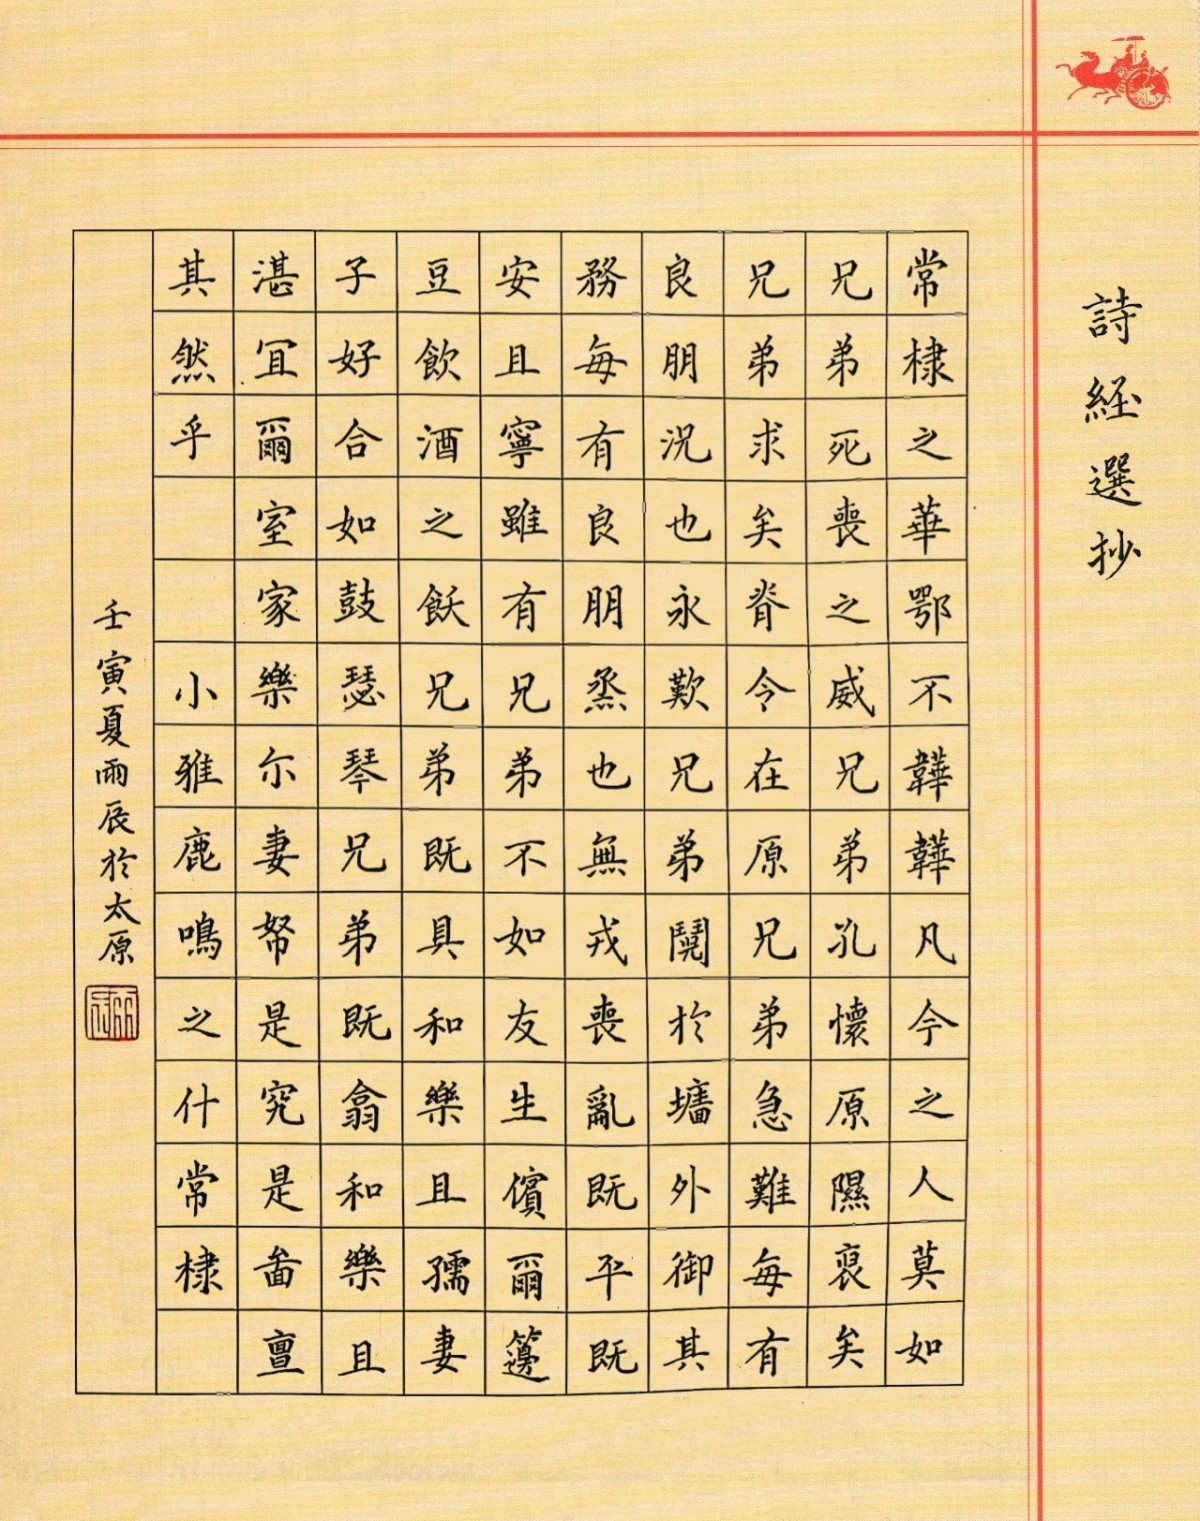 詩經選抄
常棣之華鄂不韡韡凡今之人莫如
兄弟死喪之威兄弟孔懷原隰裒矣
兄弟求矣脊令在原兄弟急難每有
良朋況也永歎兄弟鬩於墻外御其
務每有良朋烝也無戎喪亂既平既
安且寧雖有兄弟不如友生儐爾籩
豆飲酒之飫兄弟既具和樂且孺妻
子好合如鼓瑟琴兄弟既翕和樂且
湛宜爾室家樂尔妻帑是究是啚亶
其然乎 小雅鹿鳴之什常棣
壬寅夏雨辰於太原
雨辰